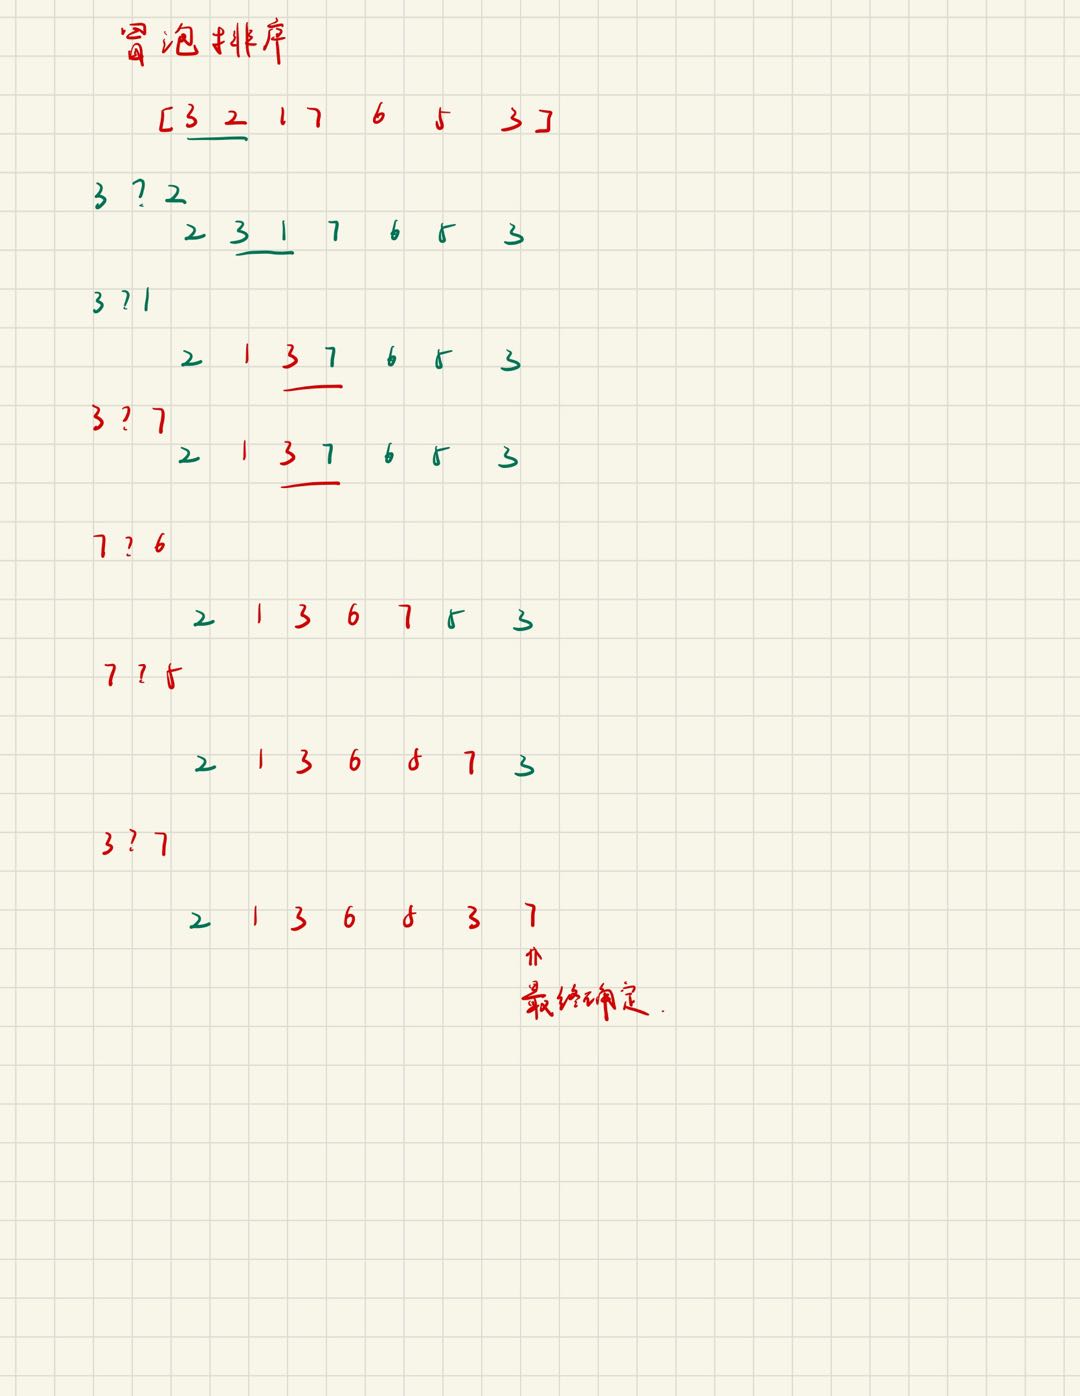 冒泡排序
[3 2 1 7 6 5 3]
3 ? 2
2 3 1 7 6 5 3
3 ? 1
2 1 3 7 6 5 3
3 ? 7
2 1 3 7 6 5 3
7 ? 6
2 1 3 6 7 5 3
7 ? 5
2 1 3 6 5 7 3
3 ? 7
2 1 3 6 5 3 7
⇑
最终确定.